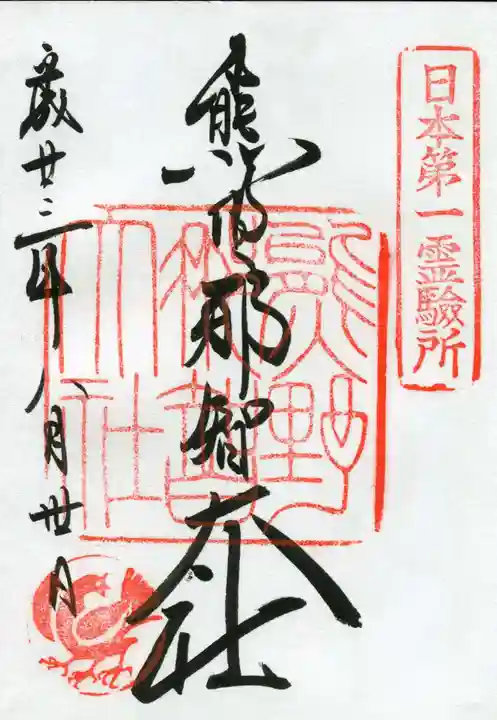 日本第一霊験所
熊野那智大社
熊野
那智
大社
歳廿三年八月丗日